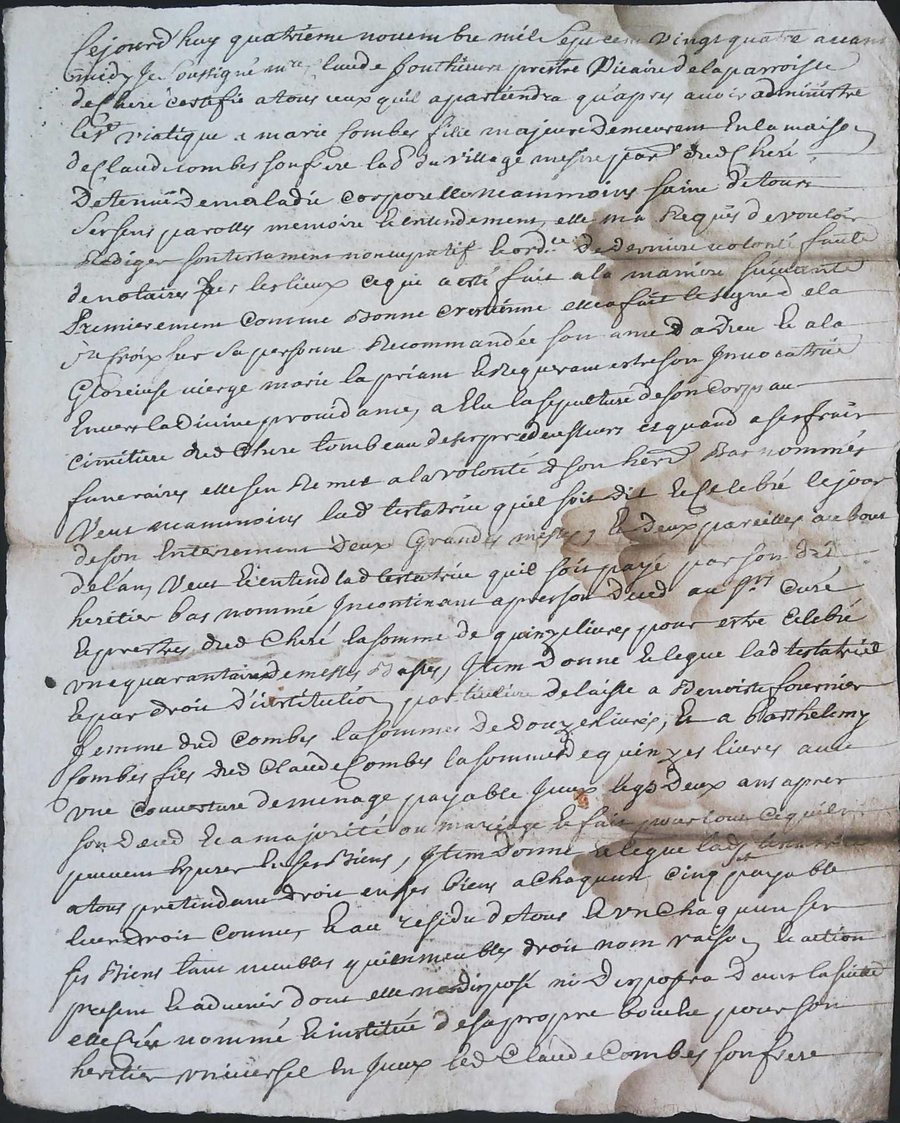 Cejourd'huy quatrieme novembre mil sept cent vingt quatre avant
midy Je soussigné mre claude fonthieure prestre vicaire de la parroisse
de Cheré certifie a tous ceux quil apartiendra qu'apres avoir administré
le st viatique a marie Combes fille majeure demeurant en la maison
de Claude combes son frere lad du village mesme parr dud Cheré
Detenue De maladie corporelle neammoins saine de tous
ses sens parolle memoire & entendement, elle ma Requis de vouloir
Rediger son testament noncupatif & ordce De derniere volonté faute
de notaires sur les lieux ce qui a esté fait a la maniere suivante
Premierement comme Bonne Crestienne elle a fait le signe de la
ste Croix sur sa personne Recommandée son ame a Dieu & a la
Glorieuse vierge marie la priant & Requerant estre son Invocatrice
Envers la Divine providance, a Elu la sepulture de son Corps au
cimitiere dud Cheré tombeau de ses predecesseurs et quand a ses frais
funeraires elle sen Remet a la volonté de son herit Bas nommés
Veut neammoins lad testatrice quil soit dit & Celebré le jour
de son Enterrement Deux Grandes messes, & deux pareilles au bout
de lan, Veut & entend lad testatrice quil soit payé par son dit
heritier bas nommé Incontinant apres son deced au Srs Curé
& prestres dud Cheré la somme de quinze livres pour estre Celebré
vne quarantaine de messes Basses, Item Donne & legue lad testatrice
& par droit D'institution particuliere delaisse a Benoiste fournier
femme dud Combes la somme de douze livres, & a Barthelemy
Combes fils dud Claude Combes la somme de quinzes livres avec
vne couverture de menage payable Iceux legs Deux ans apres
son deced & a majorité ou mariage & fait pour tout ce quils
peuvent esperer en ses Biens, Item Donne & legue lad testatrice
a tous pretendant droit en ses biens a chaquun Cinq st payable
leur droit connu, & au Residu de tous & vn chaquun ses
ses Biens tant meubles qu'immeubles droit nom raison & action
present & advenir dont elle na disposé ni disposera dans la suitte
elle a nommé & instituée de sa propre bouche pour son
heritier vniversel en Iceux led Claude Combes son frere